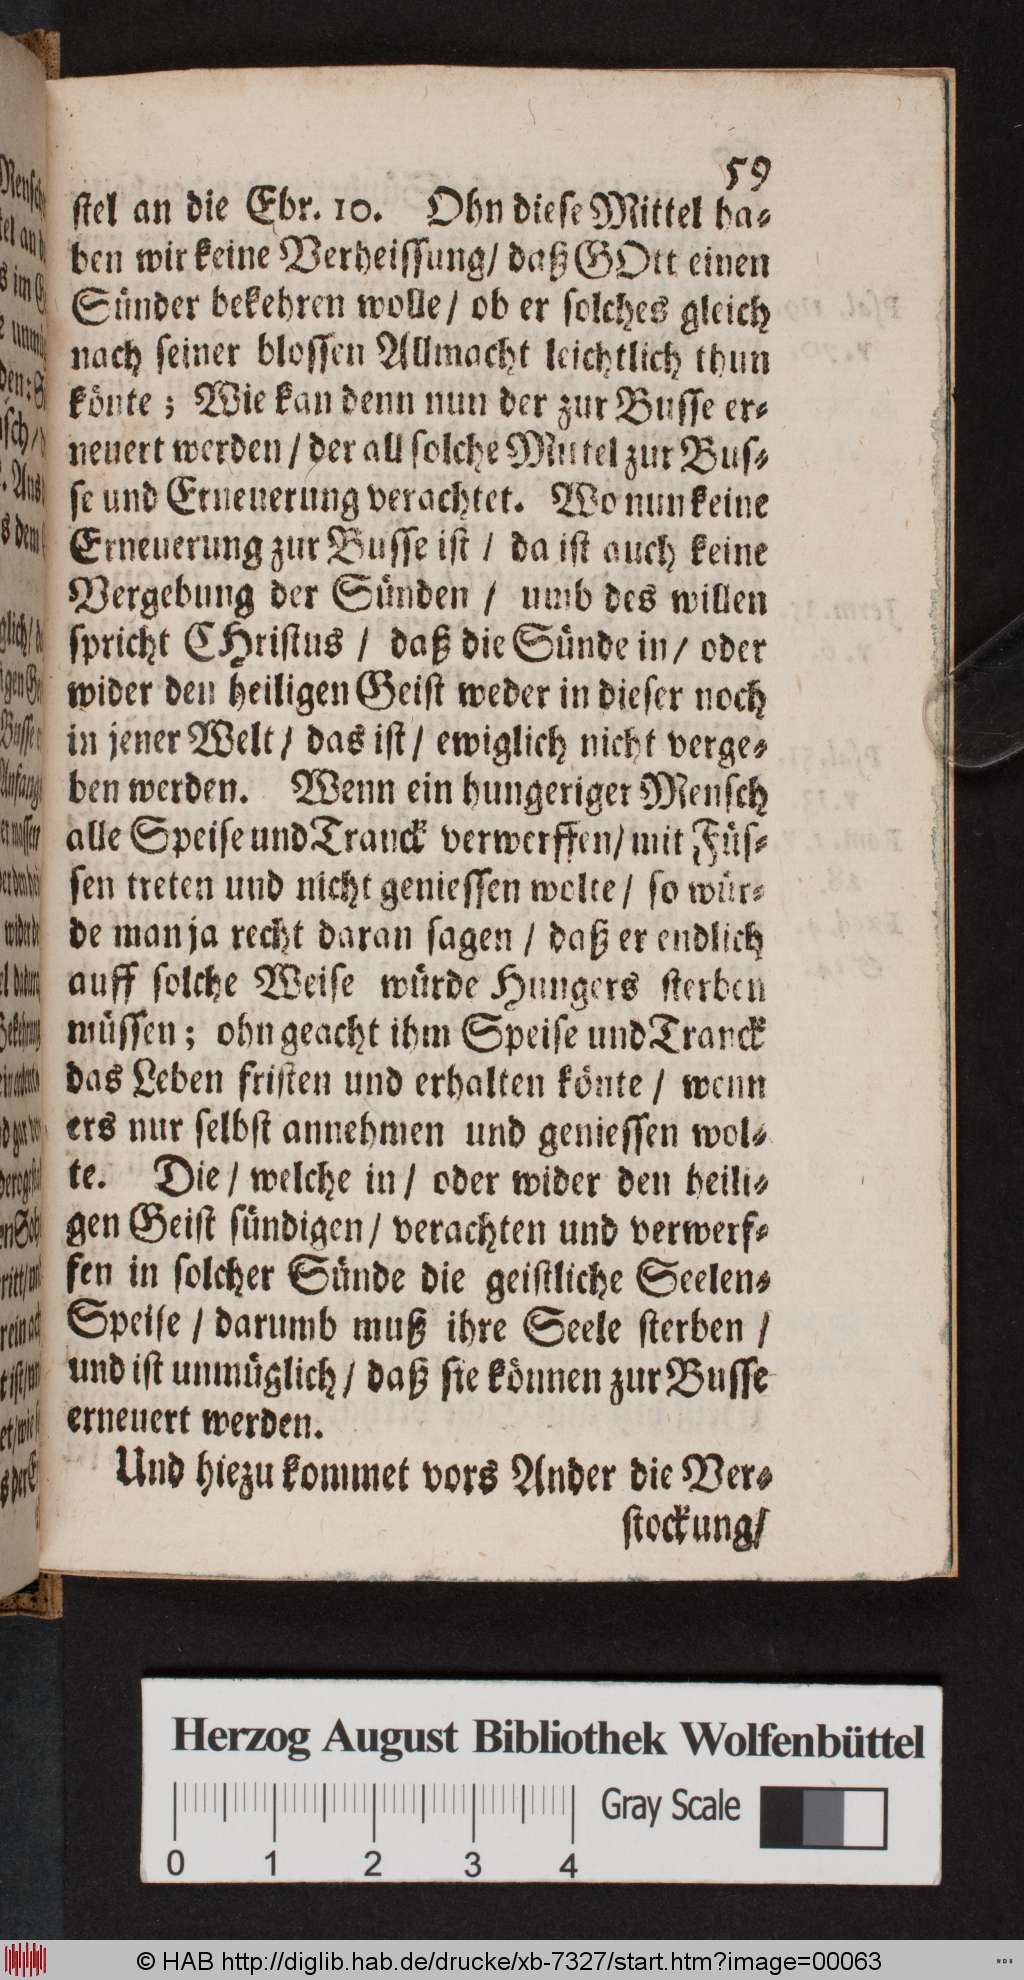 59
stel an die Ebr. 10. Ohn diese Mittel ha-
ben wir keine Verheissung/ daß GOtt einen
Sünder bekehren wolle/ ob er solches gleich
nach seiner blossen Allmacht leichtlich thun
könte; Wie kan denn nun der zur Busse er-
neuert werden/ der all solche Mittel zur Bus-
se und Erneuerung verachtet. Wo nun keine
Erneuerung zur Busse ist/ da ist auch keine
Vergebung der Sünden/ umb des willen
spricht CHristus/ daß die Sünde in/ oder
wider den heiligen Geist weder in dieser noch
in jener Welt/ das ist/ ewiglich nicht verge-
ben werden. Wenn ein hungeriger Mensch
alle Speise und Tranck verwerffen/ mit Füs-
sen treten und nicht geniessen wolte/ so wür-
de man ja recht daran sagen/ daß er endlich
auff solche Weise würde Hungers sterben
müssen; ohngeacht ihm Speise und Tranck
das Leben fristen und erhalten könte/ wenn
ers nur selbst annehmen und geniessen wol-
te. Die/ welche in/ oder wider den heili-
gen Geist sündigen/ verachten und verwerf-
fen in solcher Sünde die geistliche Seelen-
Speise/ darumb muß ihre Seele sterben/
und ist unmüglich/ daß sie können zur Busse
erneuert werden.
Und hiezu kommet vors Ander die Ver-
stockung/
Herzog August Bibliothek Wolfenbüttel
Gray Scale
0 1 2 3 4
© HAB http://diglib.hab.de/drucke/xb-7327/start.htm?image=00063